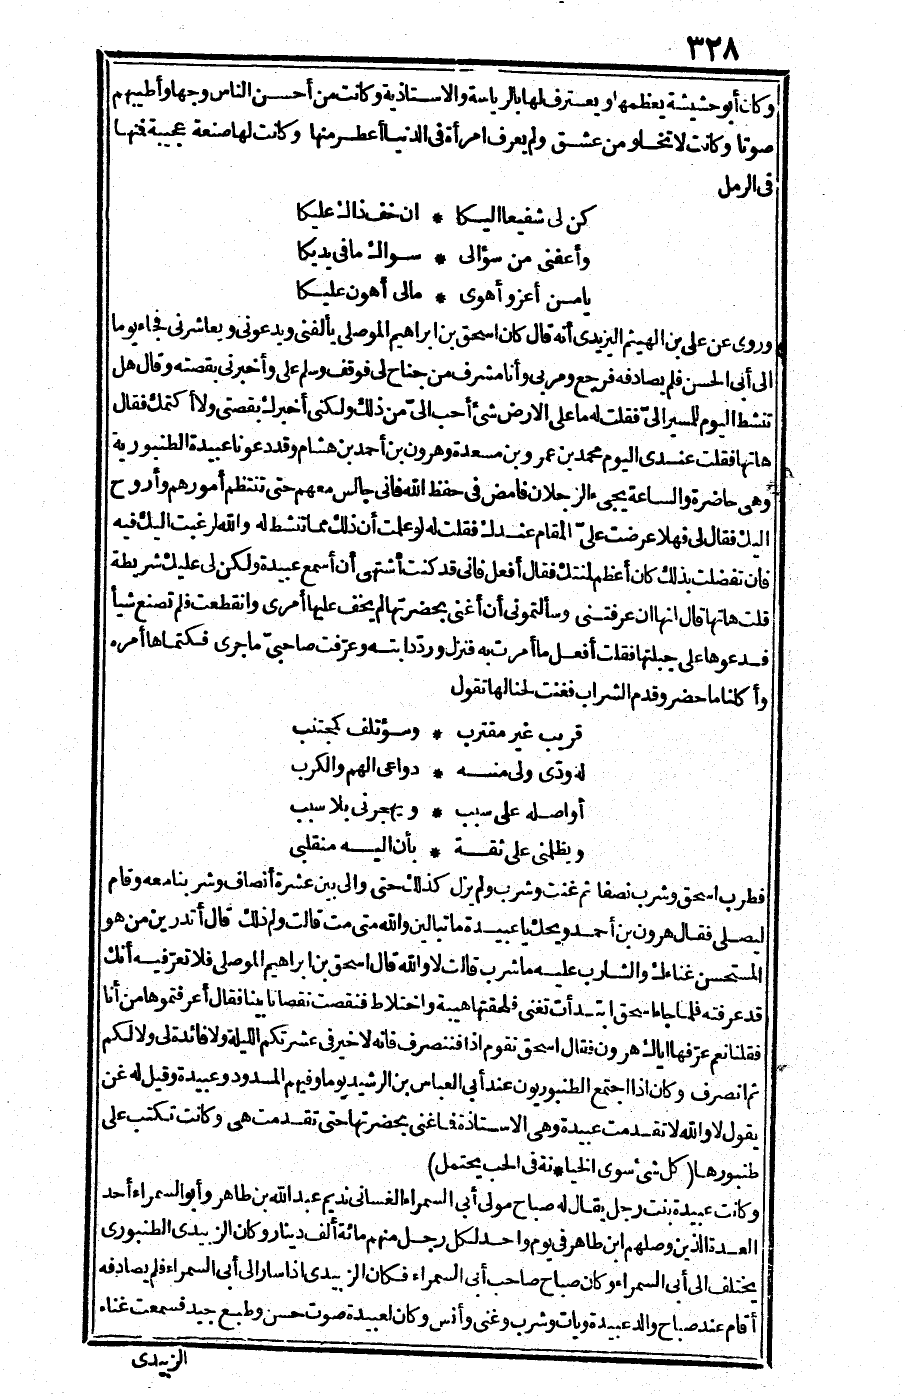 ٣٢٨
وكان أبو حشيشة يعظمها ويعترف لها بالرياسة والاستاذية وكانت من أحسن الناس وجها وأطيبهم
صوتا وكانت لا تخلو من عشق ولم يعرف امرأة فى الدنيا أعطر منها وكانت لها صنعة عجيبة فمنها
فى الرمل
كن لى شفيعا اليكا * ان خف ذاك عليكا
وأعفنى من سؤالى * سواك ما فى يديكا
يا من أعز وأهوى * مالى أهون عليكا
وروى عن على بن الهيثم اليزيدى أنه قال كان اسحق بن ابراهيم الموصلى يألفنى ويدعونى ويعاشرنى فجاء يوما
الى أبى الحسن فلم يصادفه فرجع ومر بى وأنا مشرف من جناح لى فوقف وسلم على وأخبرنى بقصته وقال هل
تنشط اليوم للمسير الىّ فقلت له ما على الارض شئ أحب الىّ من ذلك ولكنى أخبرك بقصتى ولا أكتمك فقال
هاتها فقلت عندى اليوم محمد بن عمرو بن مسعدة وهرون بن أحمد بن هشام وقد دعونا عبيدة الطنبورية
وهى حاضرة والساعة يجىء الرجلان فامض فى حفظ الله فانى جالس معهم حتى تنتظم أمورهم وأروح
اليك فقال لى فهلا عرضت علىّ المقام عندك فقلت له لو علمت أن ذلك مما تنشط له والله لرغبت اليك فيه
فان تفضلت بذلك كان أعظم لمنتك فقال أفعل فانى قد كنت أشتهى أن أسمع عبيدة ولكن لى عليك شريطة
قلت هاتها قال انها ان عرفتنى وسألتمونى أن أغنى بحضرتها لم يخف عليها أمرى وانقطعت فلم تصنع شيأ
فدعوها على جبلتها فقلت أفعل ما أمرت به فنزل ورد دابته وعرّفت صاحبىّ ما جرى فكتماها أمره
وأكلنا ما حضر وقدم الشراب فغنت لحنا لها تقول
قريب غير مقترب * ومؤتلف كمجتنب
له ودّى ولى منه * دواعى الهم والكرب
أواصله على سبب * ويهجرنى بلا سبب
ويظلمنى على ثقة * بأن اليه منقلبى
فطرب اسحق وشرب نصفا ثم غنت وشرب ولم يزل كذلك حتى والى بين عشرة أنصاف وشربنا معه وقام
ليصلى فقال هرون بن أحمد ويحك يا عبيدة ما تبالين والله متى مت قالت ولم ذلك قال أتدرين من هو
المستحسن غناءك والشارب عليه ما شرب قالت لا والله قال اسحق بن ابراهيم الموصلى فلا تعرّفيه أنك
قد عرفته فلما جاء اسحق ابتدأت تغنى فلحقتها هيبة واختلاط فنقصت نقصانا بينا فقال أعرفتموها من أنا
فقلنا نعم عرّفها اياك هرون فقال اسحق نقوم اذا فننصرف فانه لا خير فى عشرتكم الليلة ولا فائدة لى ولا لكم
ثم انصرف وكان اذا اجتمع الطنبوريون عند أبى العباس بن الرشيد يوما وفيهم المسدود وعبيدة وقيل له غن
يقول لا والله لا تقدمت عبيدة وهى الاستاذة فما غنى بحضرتها حتى تقدمت هى وكانت تكتب على
طنبورها (كل شئ سوى الخيا*نة فى الحب يحتمل)
وكانت عبيدة بنت رجل يقال له صباح مولى أبى السمراء الغسانى نديم عبد الله بن طاهر وأبو السمراء أحد
العدة الذين وصلهم ابن طاهر فى يوم واحد لكل رجل منهم مائة ألف دينار وكان الزبيدى الطنبورى
يختلف الى أبى السمراء وكان صباح صاحب أبى السمراء فكان الزبيدى اذا سار الى أبى السمراء فلم يصادفه
أقام عند صباح والد عبيدة وبات وشرب وغنى وأنس وكان لعبيدة صوت حسن وطبع جيد فسمعت غناء
الزبيدى